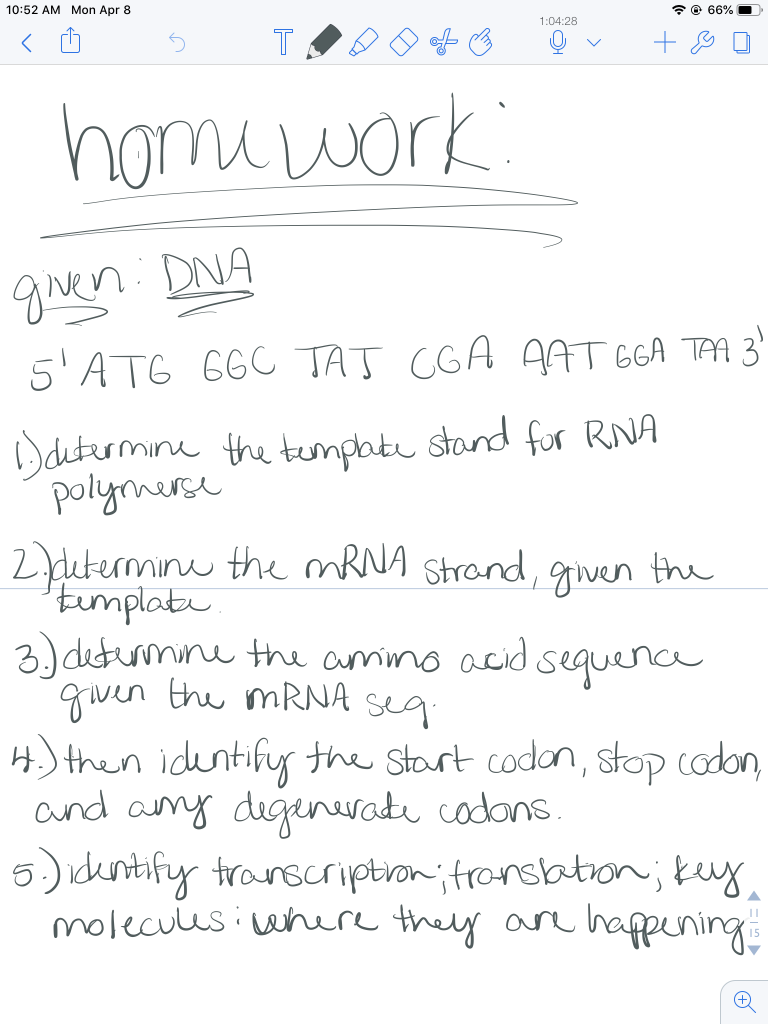 10:52 AM Mon Apr 8 66%
1:04:28
T
homework:
given: DNA
5' ATG GGC TAT CGA AAT GGA TAA 3'
1.) determine the template stand for RNA
polymerse
2.) determine the mRNA strand, given the
template.
3.) determine the amino acid sequence
given the mRNA seq.
4.) then identify the start codon, stop codon,
and any degenerate codons.
5.) identify transcription; translation; key
molecules: where they are happening
11
15